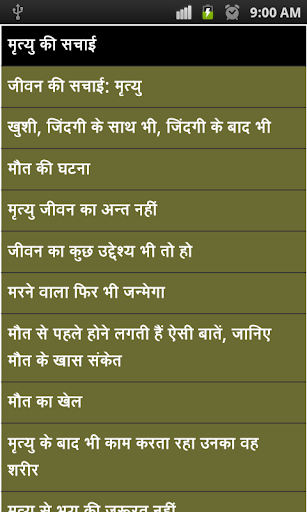 9:00 AM
मृत्यु की सचाई
जीवन की सचाई: मृत्यु
खुशी, जिंदगी के साथ भी, जिंदगी के बाद भी
मौत की घटना
मृत्यु जीवन का अन्त नहीं
जीवन का कुछ उद्देश्य भी तो हो
मरने वाला फिर भी जन्मेगा
मौत से पहले होने लगती हैं ऐसी बातें, जानिए
मौत के खास संकेत
मौत का खेल
मृत्यु के बाद भी काम करता रहा उनका वह
शरीर
मृत्यु से भय की जरूरत नहीं